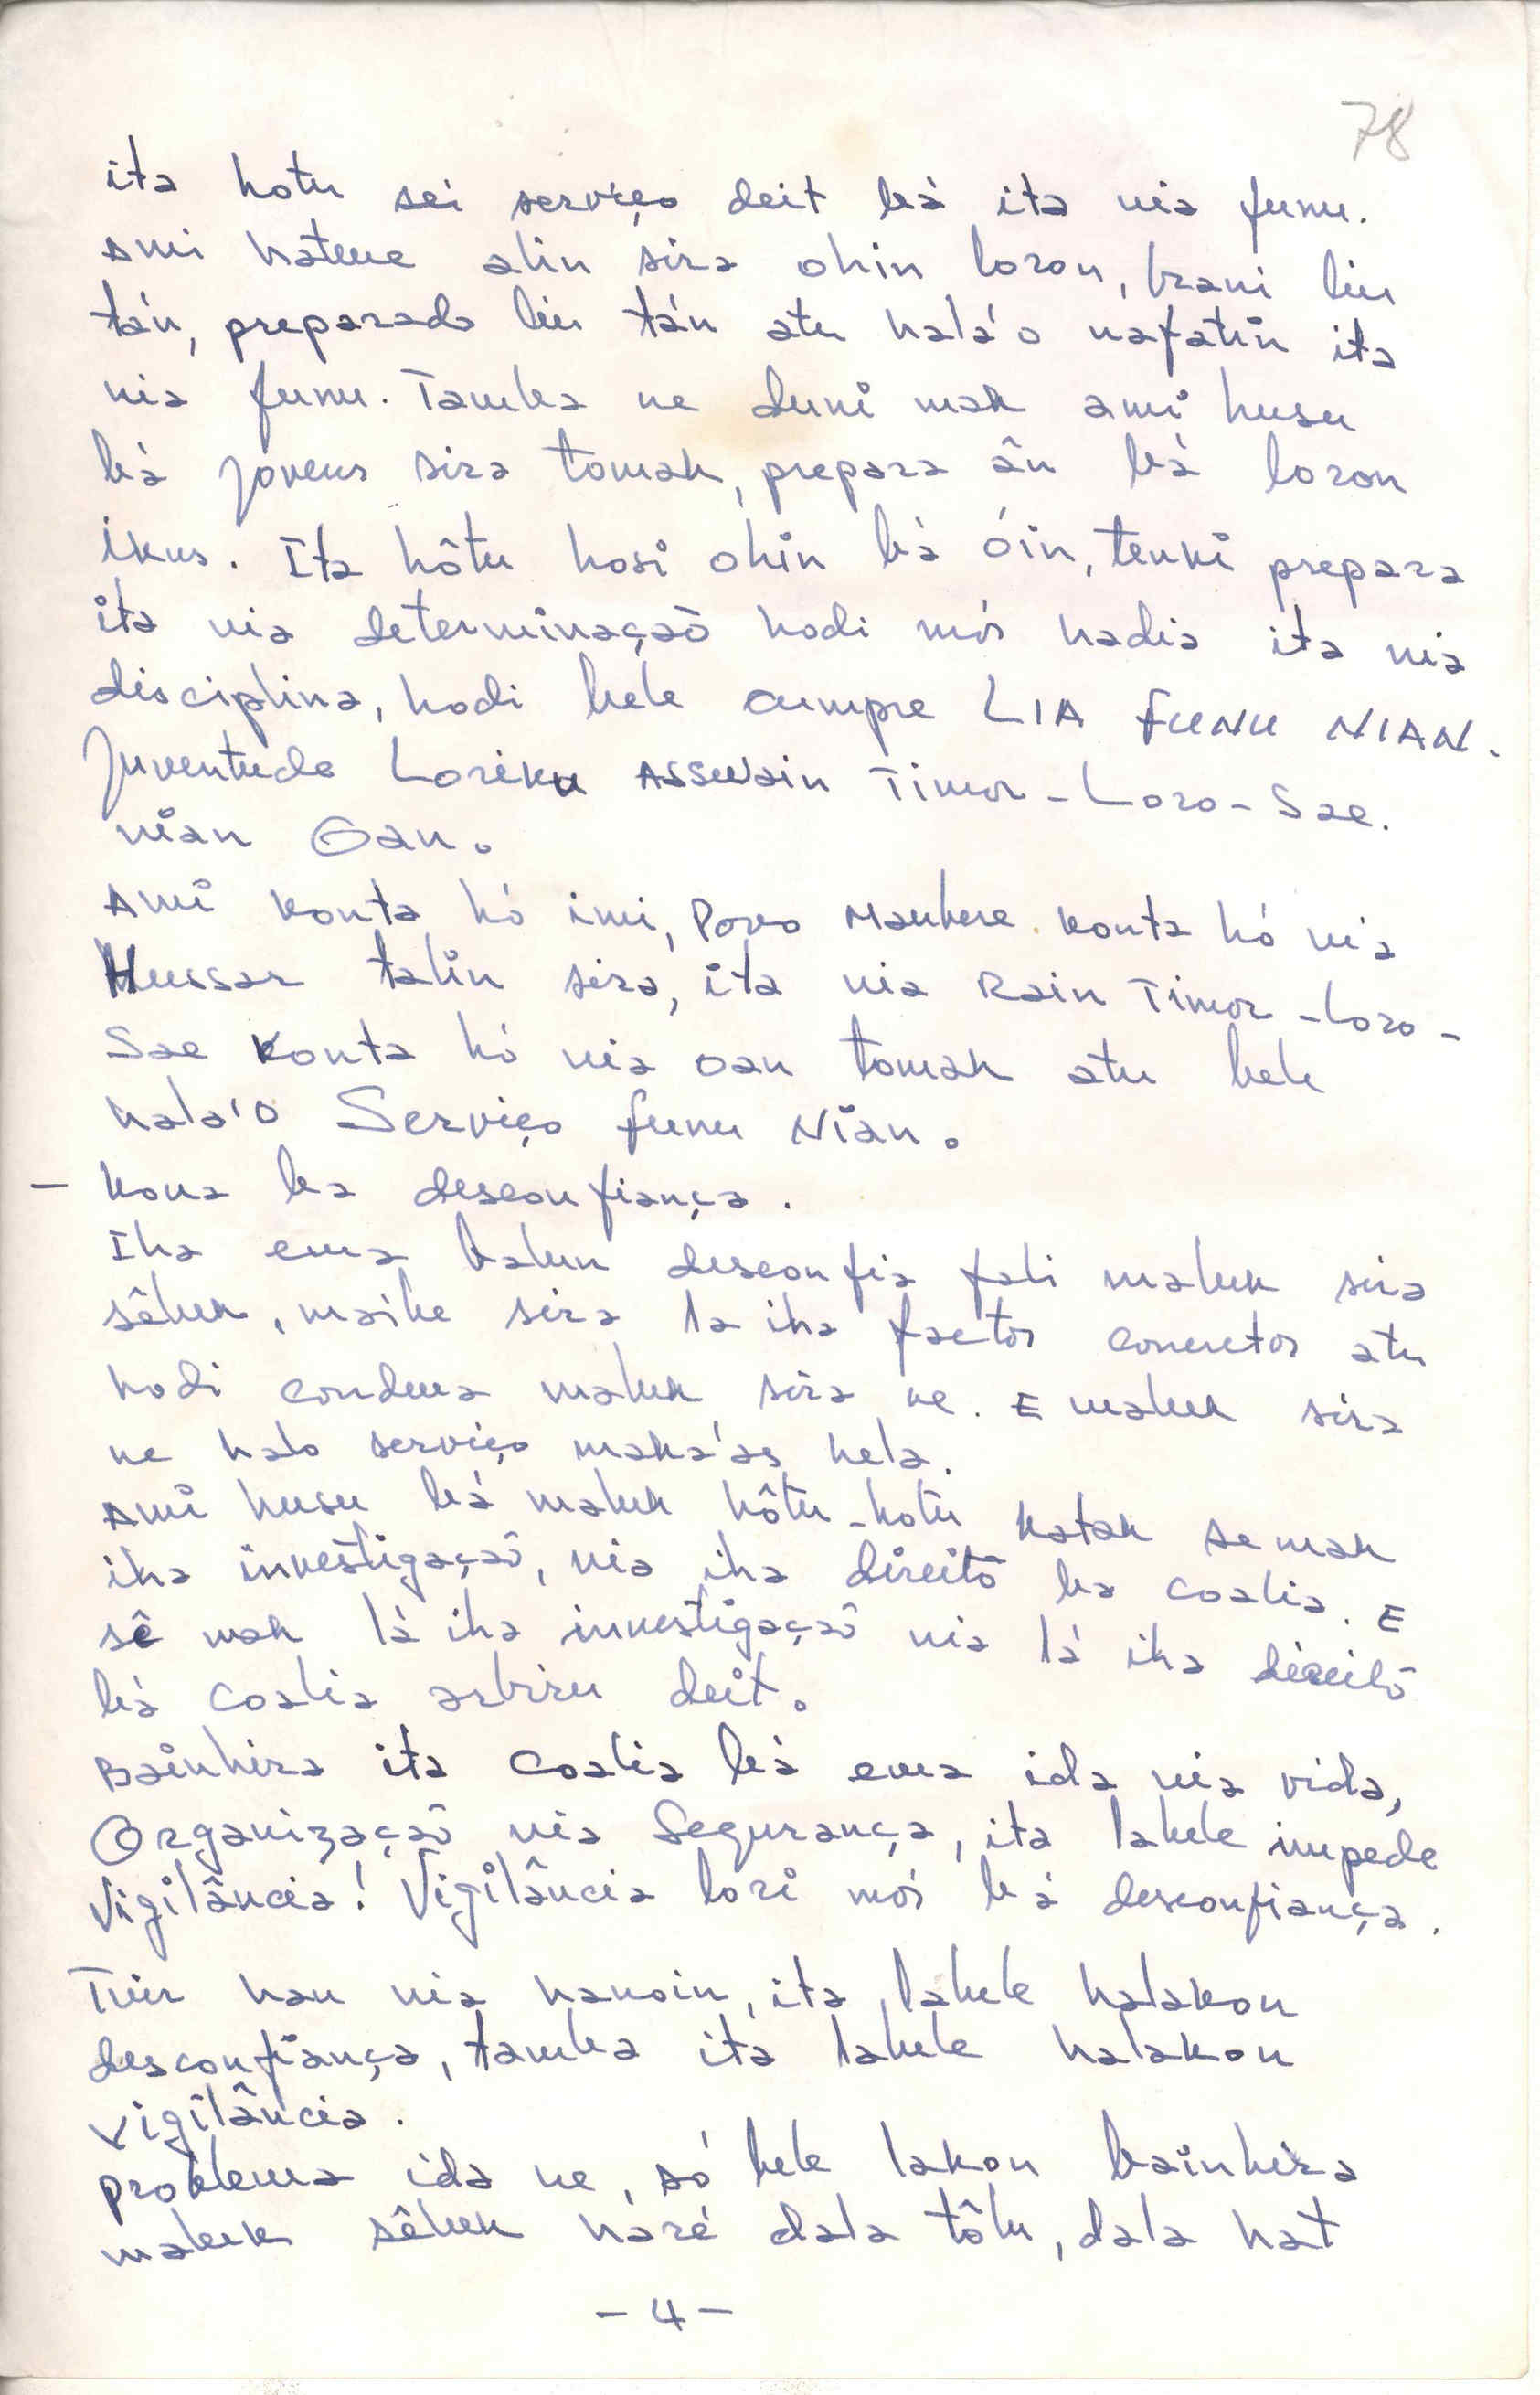 78
ita hotu sei serviço deit bá ita nia funu.
Ami hatene alin sira ohin loron, brani liu
tán, preparado liu tán atu hala'o nafatin ita
nia funu. Tamba ne duni mak ami husu
bá jovens sira tomak, prepara ân bá loron
ikus. Ita hôtu hosi ohin bá óin, tenki prepara
ita nia determinação hodi mós hadia ita nia
disciplina, hodi bele cumpre LIA FUNU NIAN.
Juventude Loriku Asswain Timor-Loro-Sae.
nian Oan.
Ami konta hó imi, Povo Maubere konta hó nia
Hussar talin sira, ita nia Rain Timor-Loro-
Sae konta hó nia oan tomak atu bele
hala'o Serviço funu Nian.
- Kona ba desconfiança.
Iha ema balun desconfia fali maluk sira
sêluk, maibe sira la iha factos concretos atu
hodi condena maluk sira ne. E maluk sira
ne halo serviço maka'as hela.
Ami husu bá maluk hôtu-hotu katak se mak
iha investigação, nia iha direito ba coalia. E
sê mak lá iha investigação nia lá iha direito
bá coalia arbiru deit.
Bainhira ita coalia bá ema ida nia vida,
Organização nia Segurança, ita labele impede
Vigilância! Vigilância lori mós bá desconfiança.
Tuir hau nia hanoin, ita labele halakon
desconfiança, tamba ita labele halakon
vigilância.
problema ida ne, só bele lakon bainhira
maluk sêluk haré dala tôlu, dala hat
- 4 -